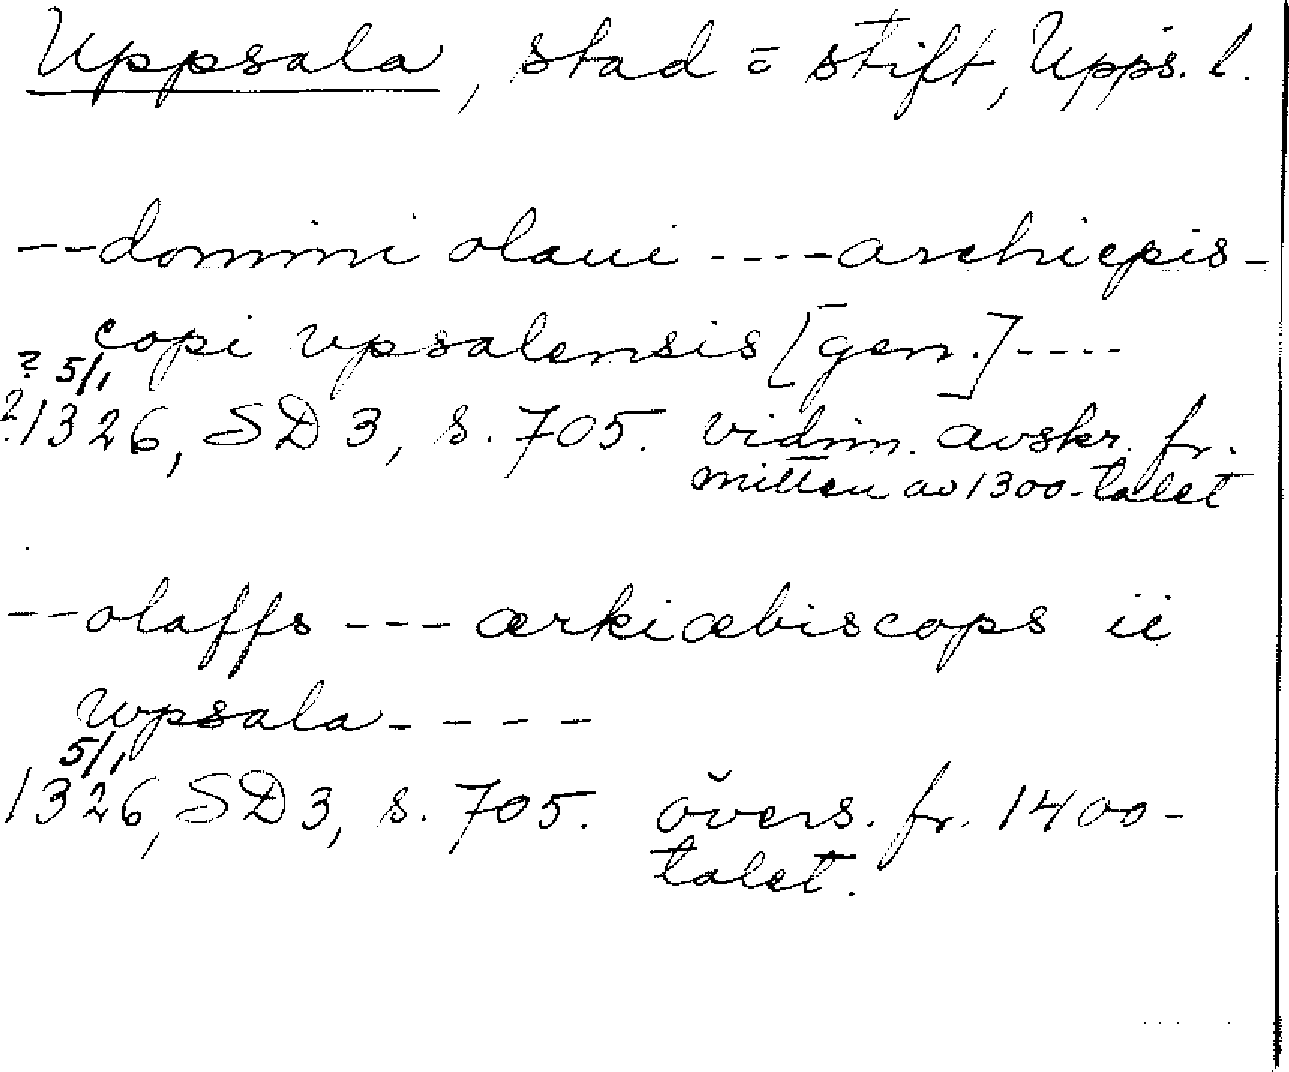 Uppsala, stad o stift, Upps. l.
--domini olaui ----archiepis-
copi vpsalensis [gen.]----
? 5/1
? 1326, SD 3, s. 705. vidim. avskr. fr.
mitten av 1300-talet
--olaffs --- ærkiæbiscops ii
wpsala----
5/1
1326, SD 3, s. 705. övers. fr. 1400-
talet.